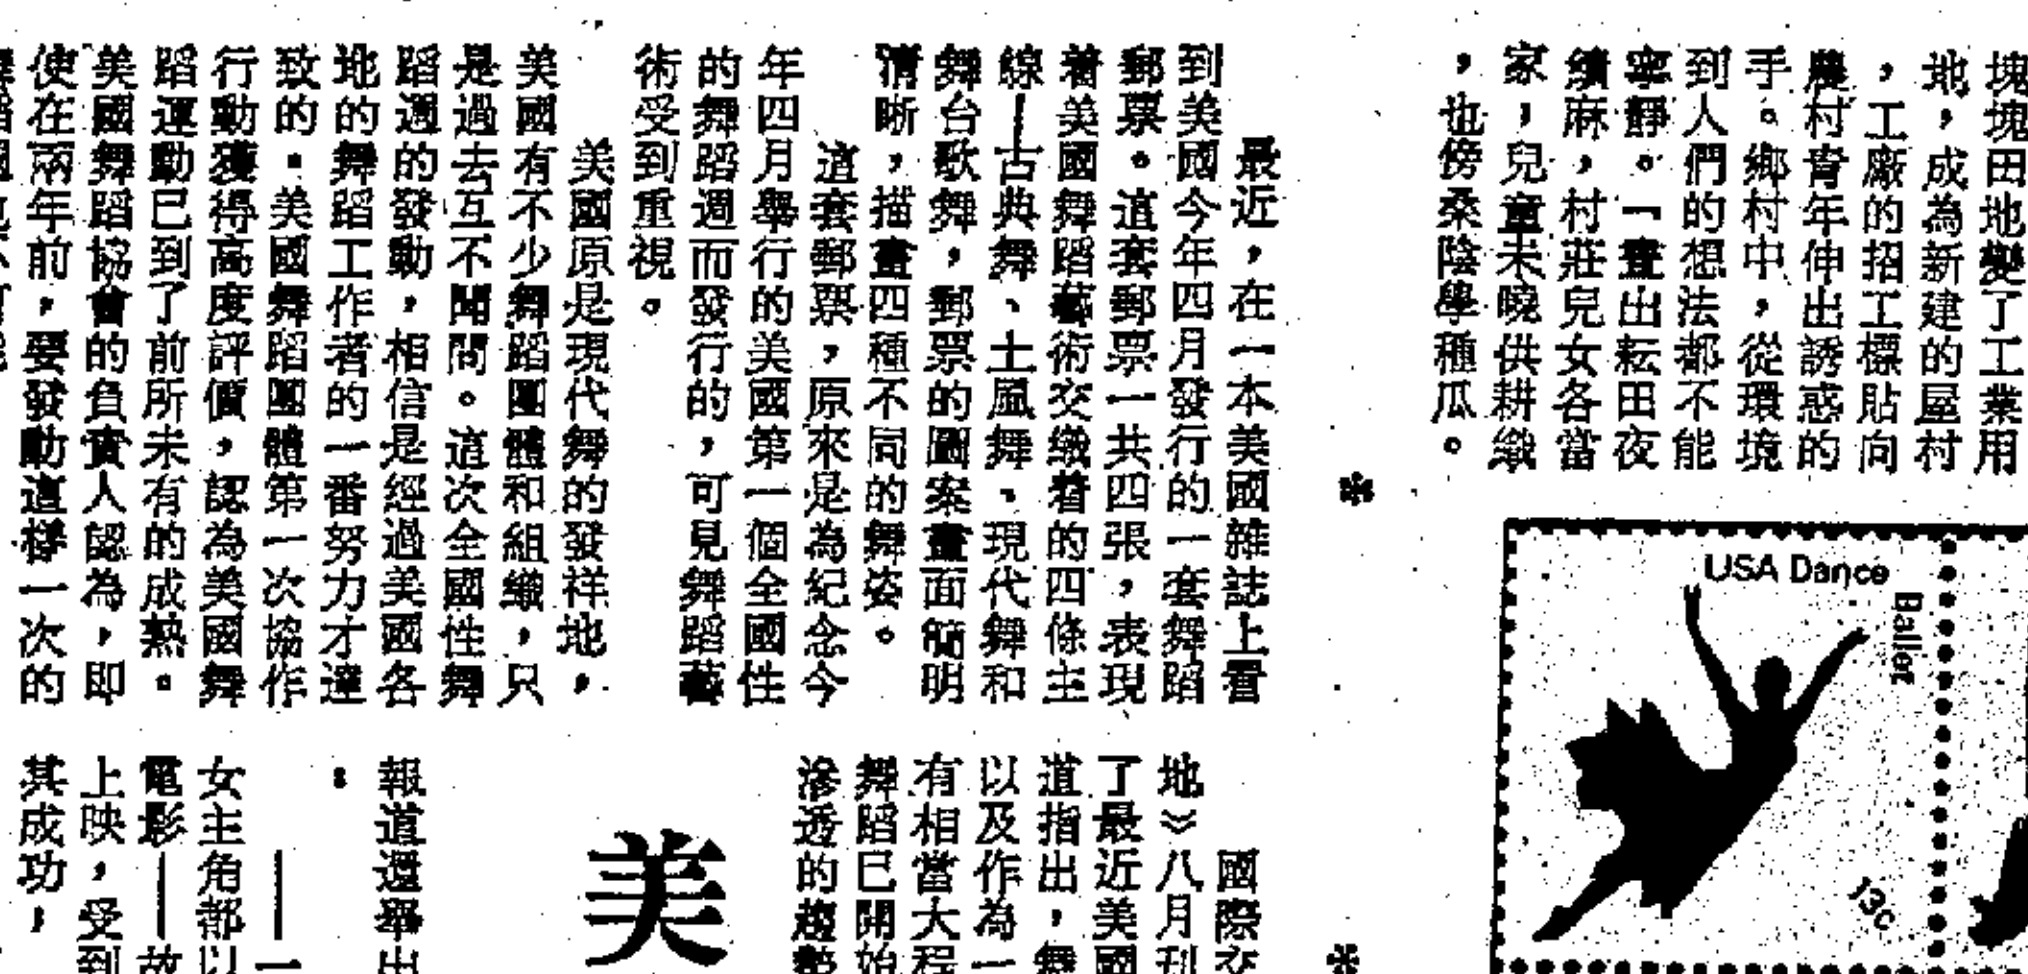 塊塊田地變了工業用
地，成為新建的屋村
，工廠的招工標貼向
農村青年伸出誘惑的
手。鄉村中，從環境
到人們的想法都不能
寧靜。「晝出耘田夜
績麻，村莊兒女各當
家，兒童未曉供耕織
，也傍桑陰學種瓜。
USA Dance
Ballet
13c
最近，在一本美國雜誌上看
到美國今年四月發行的一套舞蹈
郵票。這套郵票一共四張，表現
着美國舞蹈藝術交織着的四條主
線—古典舞、土風舞、現代舞和
舞台歌舞，郵票的圖案畫面簡明
清晰，描畫四種不同的舞姿。
這套郵票，原來是為紀念今
年四月舉行的美國第一個全國性
的舞蹈週而發行的，可見舞蹈藝
術受到重視。
美國原是現代舞的發祥地，
美國有不少舞蹈團體和組織，只
是過去互不聞問。這次全國性舞
蹈週的發動，相信是經過美國各
地的舞蹈工作者的一番努力才達
致的。美國舞蹈團體第一次協作
行動獲得高度評價，認為美國舞
蹈運動已到了前所未有的成熟。
美國舞蹈協會的負責人認為，即
使在兩年前，要發動這樣一次的
國際交
地》八月刊
了最近美國
道指出，舞
以及作為一
有相當大程
舞蹈已開始
滲透的趨勢
美
報道還舉出
：
——一
女主角都以
電影——故
上映，受到
其成功，